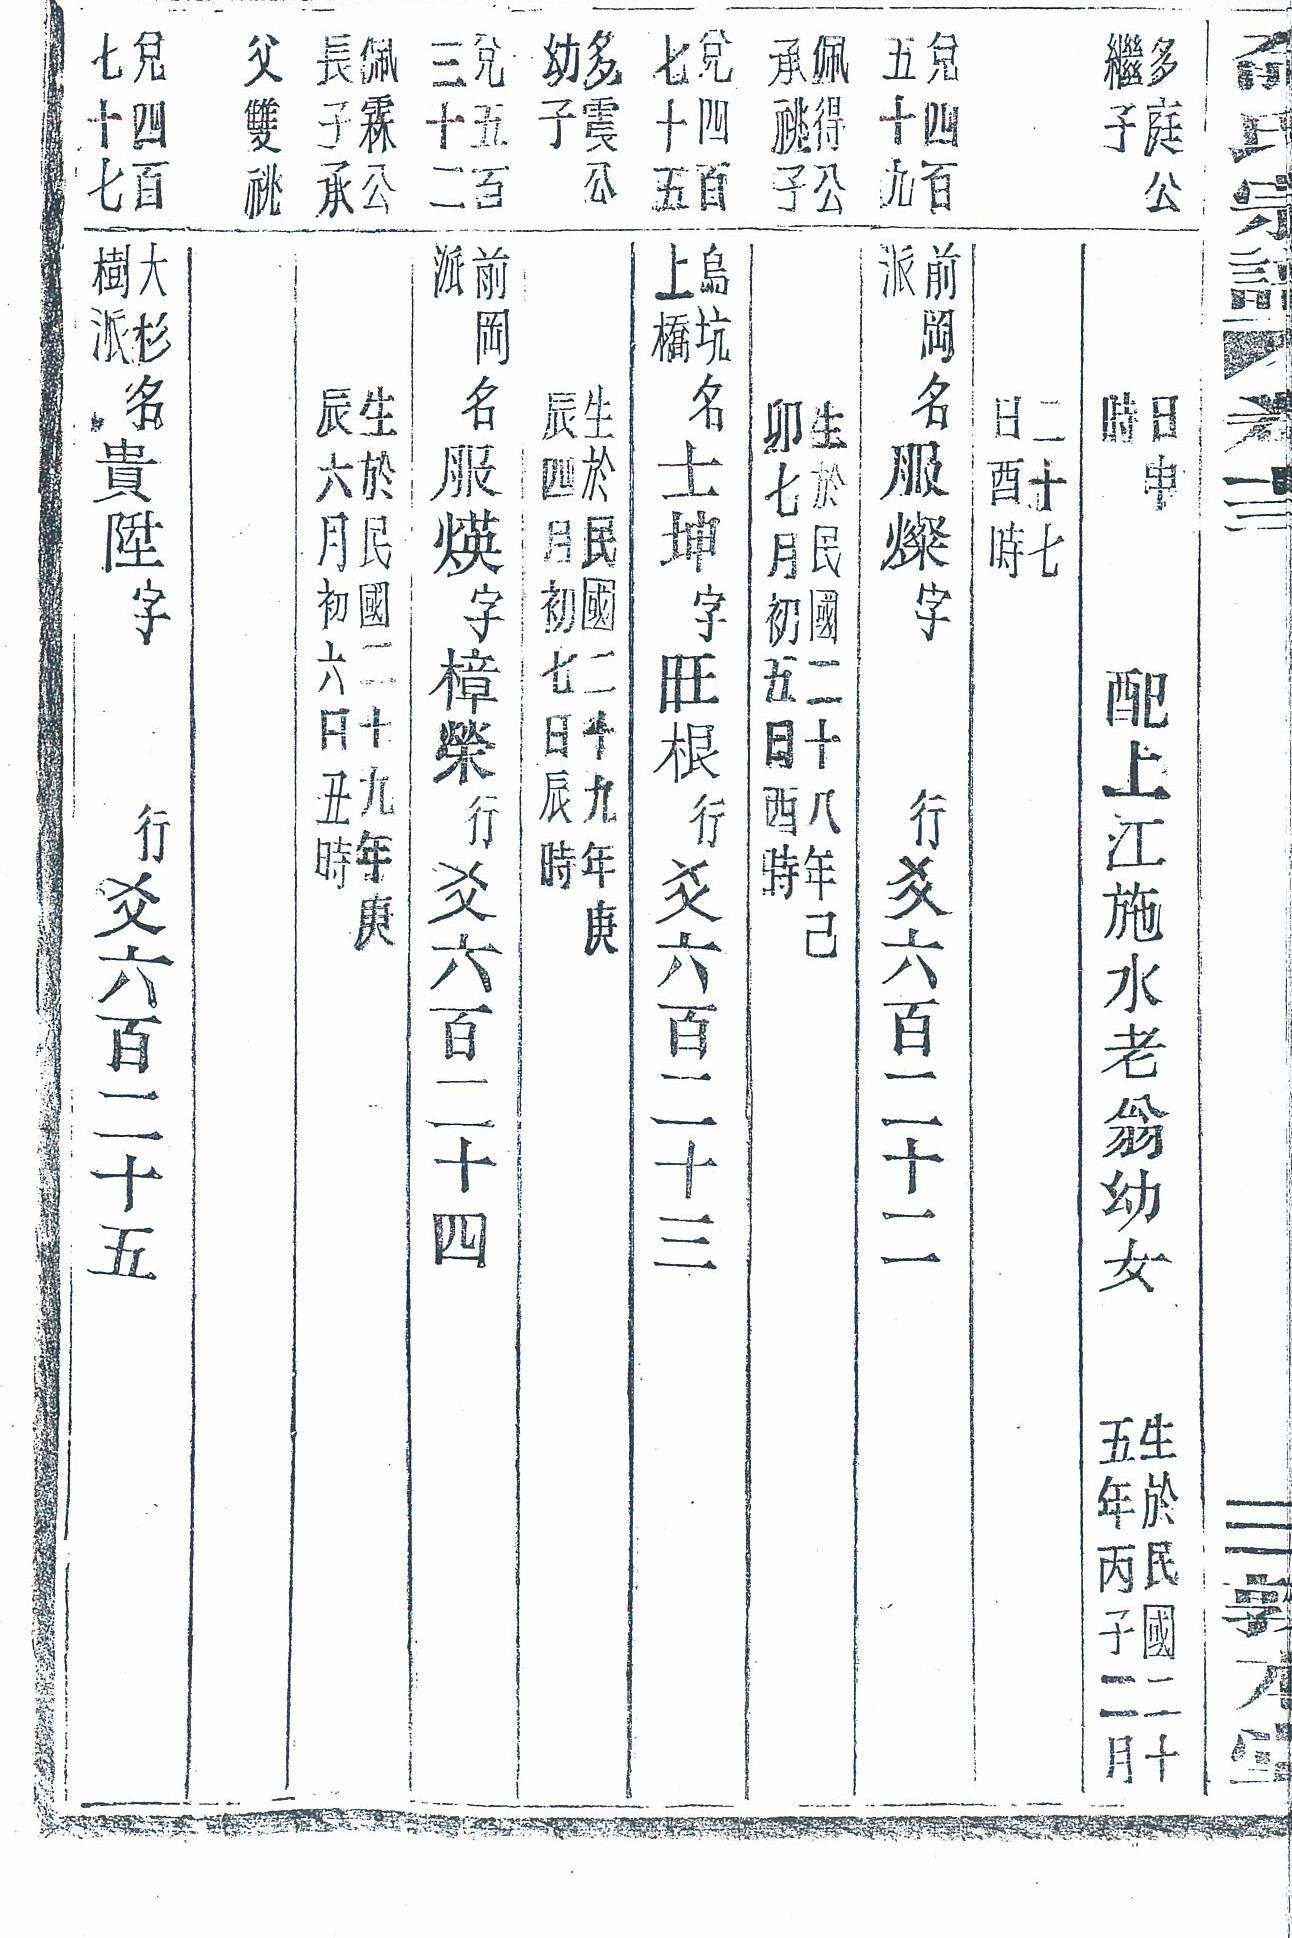 氏宗譜 卷十三
多庭公
繼子
日申
時
配上江施水老翁幼女
生於民國二十
五年丙子二月
二十七
日酉時
兌四百
五十九
前岡
派
名服燦字
行爻六百二十二
佩得公
承祧子
生於民國二十八年己
卯七月初五日酉時
兌四百
七十五
烏坑
上橋
名士坤字旺根行爻六百二十三
多震公
幼子
生於民國二十九年庚
辰四月初七日辰時
兌五百
三十二
前岡
派
名服煐字樟榮行爻六百二十四
佩霖公
長子承
生於民國二十九年庚
辰六月初六日丑時
父雙祧
兌四百
七十七
大杉
樹派
名貴陞字
行爻六百二十五
三 敦本堂